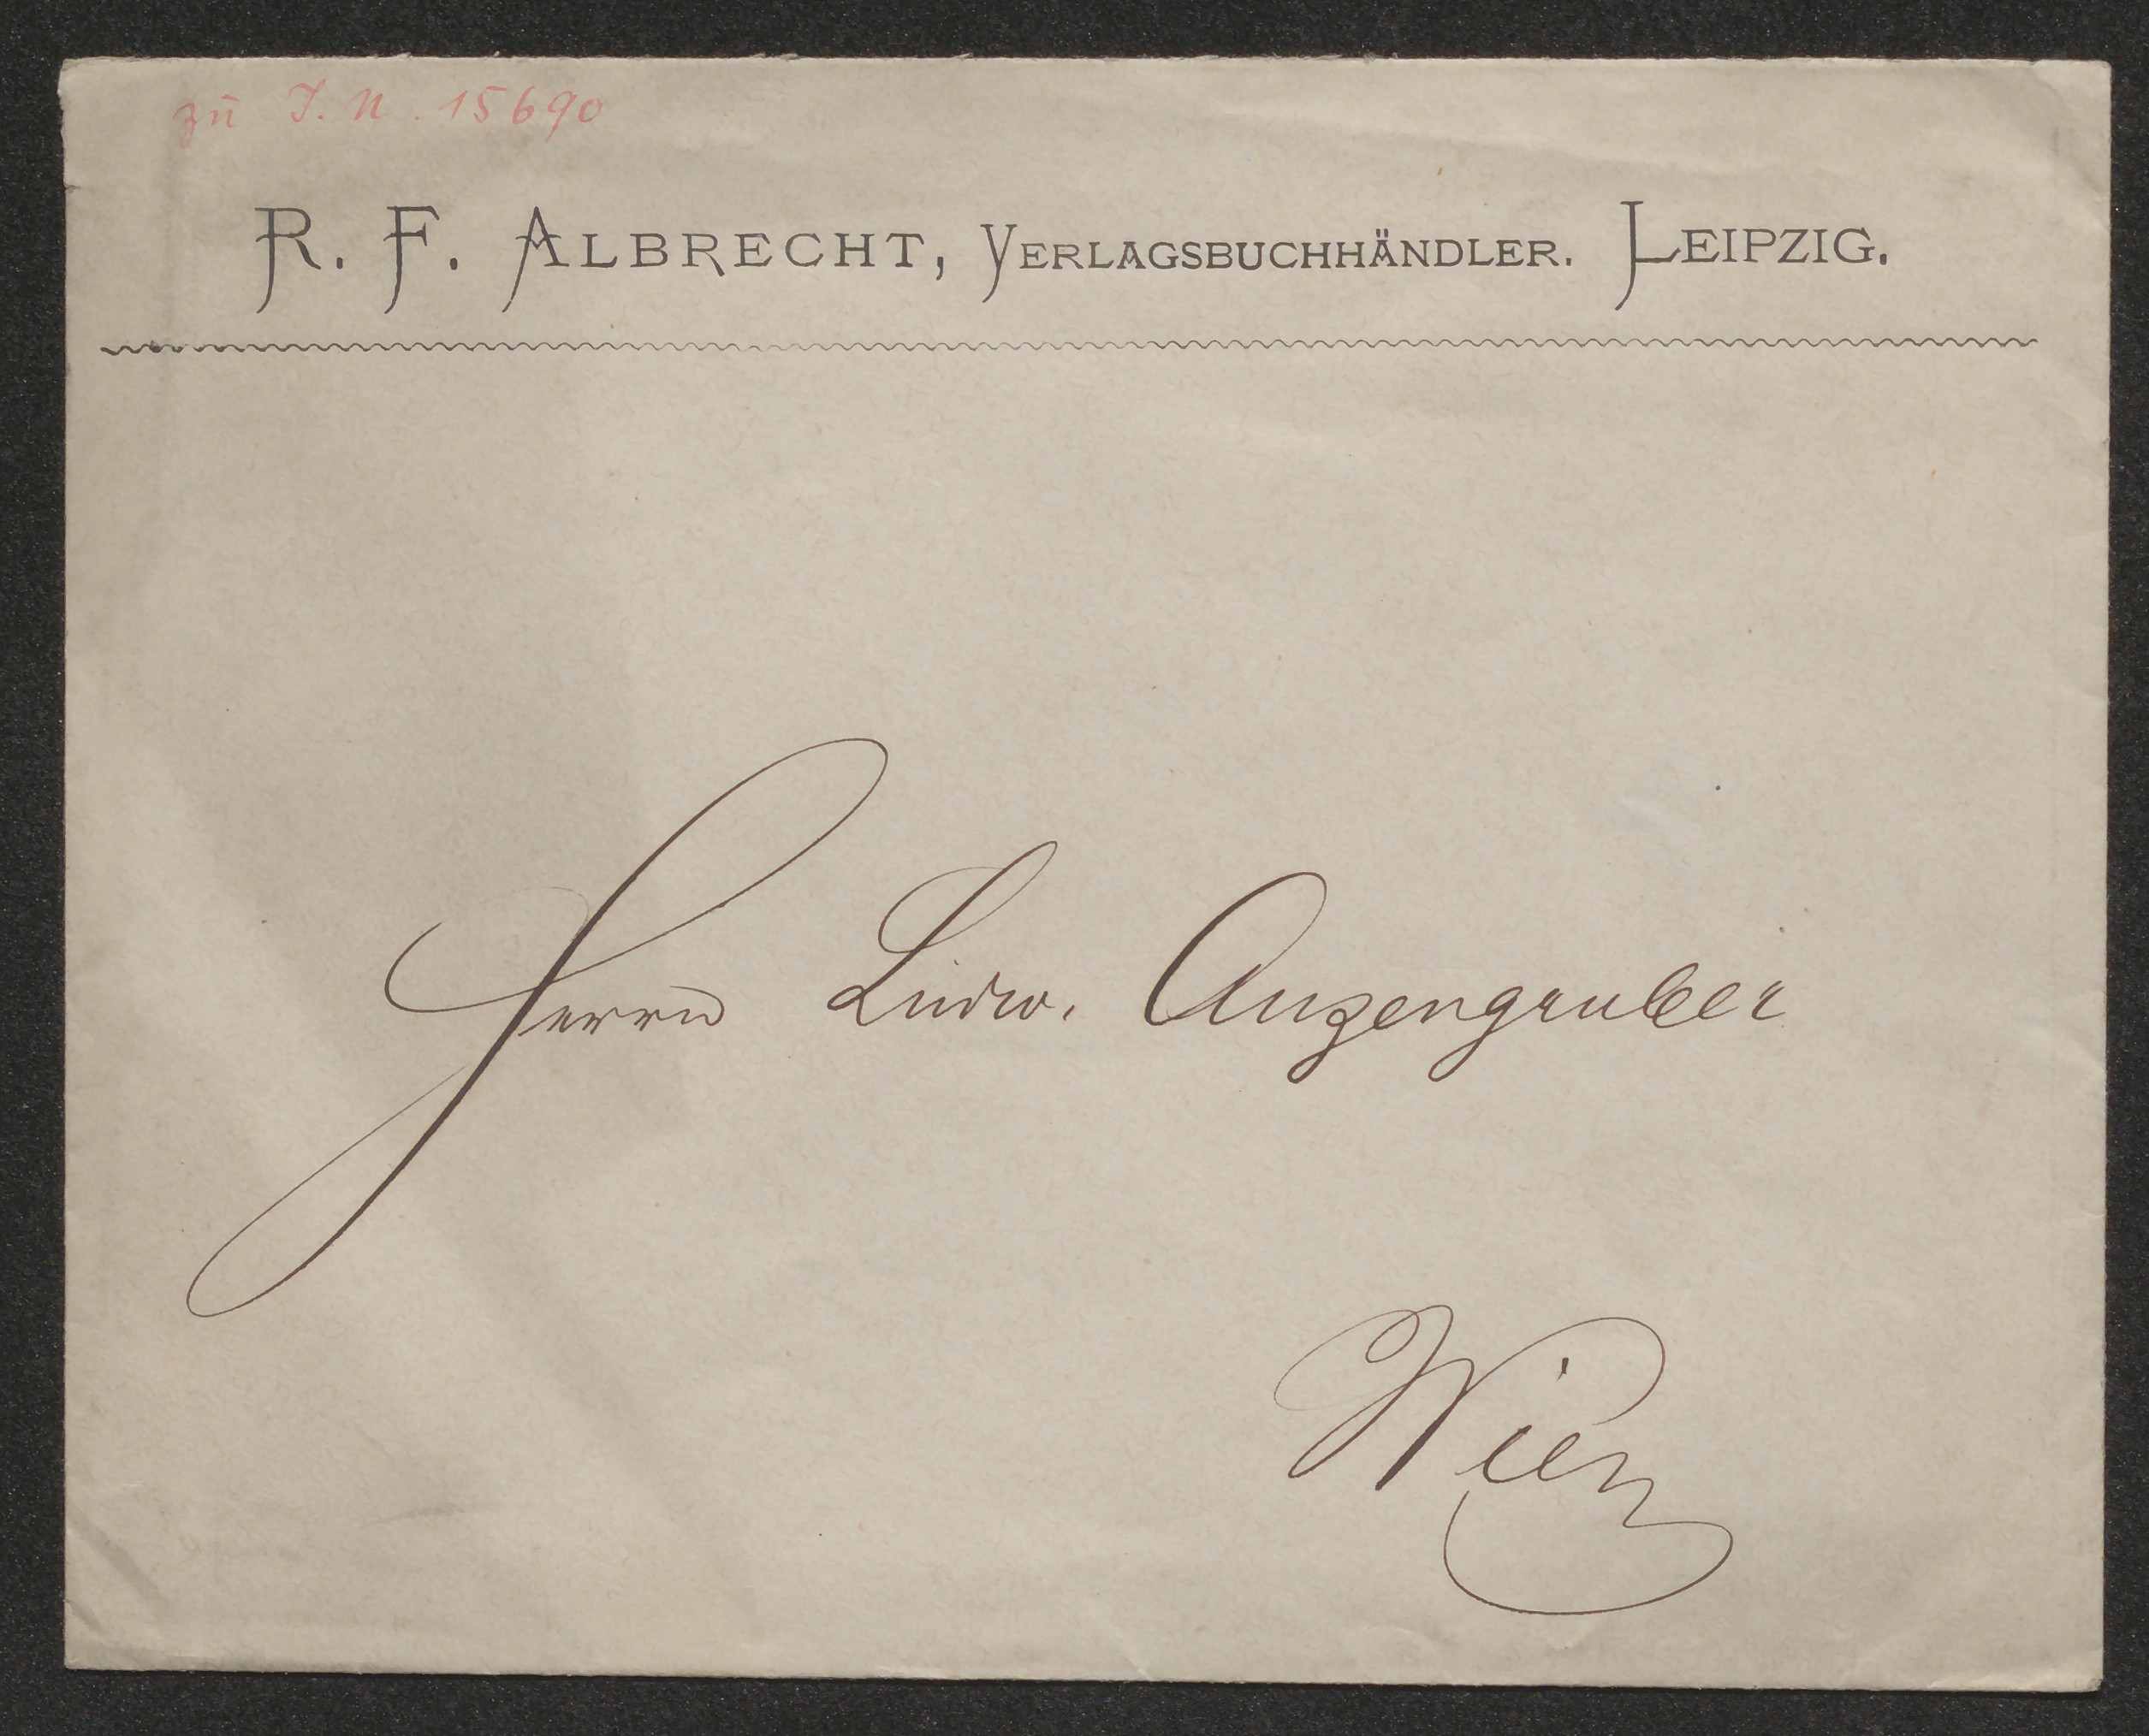 zu I. N. 15690
R. F. ALBRECHT, VERLAGSBUCHHÄNDLER. LEIPZIG.
Herrn Ludw. Anzengruber
Wien